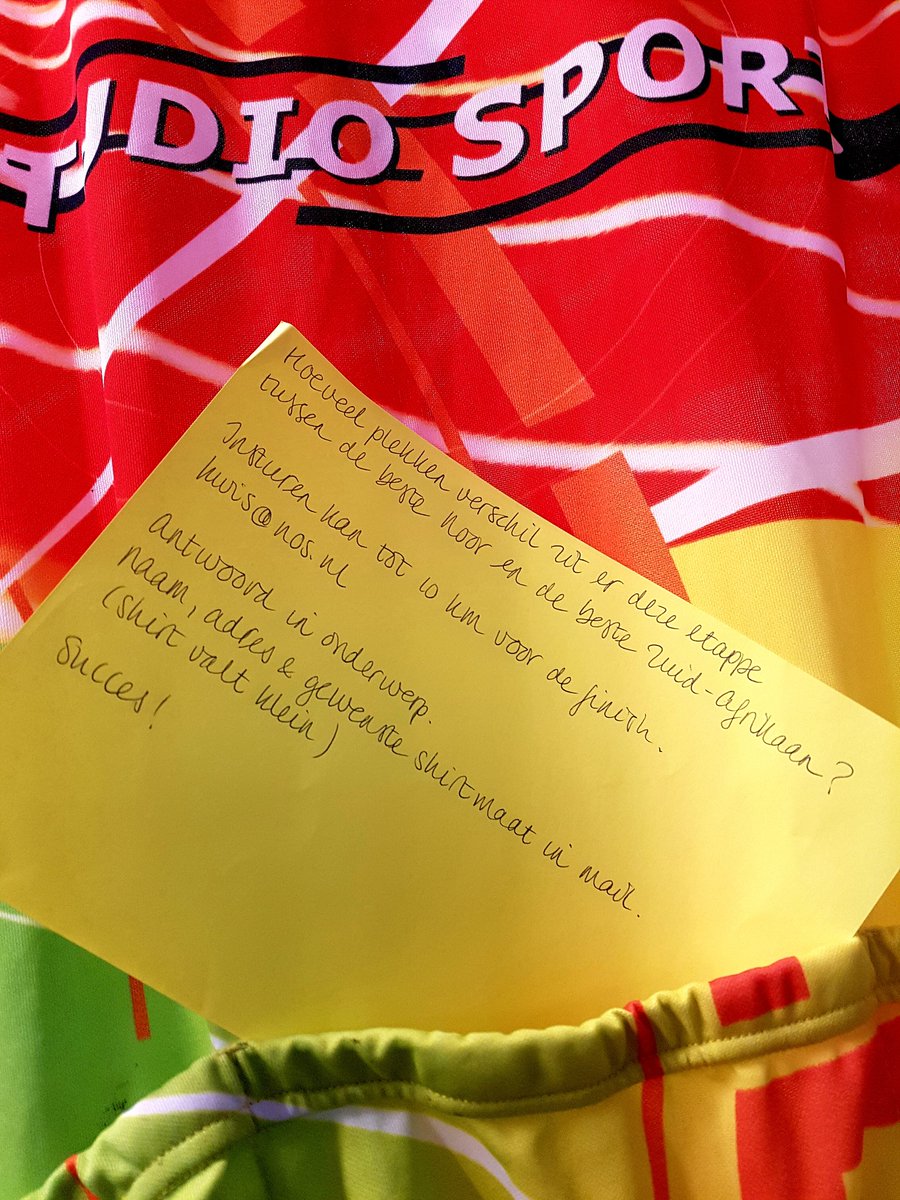 STUDIO SPORT
Hoeveel plekken verschil zit er deze etappe
tussen de beste Noor en de beste Zuid-Afrikaan?
Insturen kan tot 10 km voor de finish.
kwis@nos.nl
Antwoord in onderwerp.
naam, adres & gewenste shirtmaat in mail.
(shirt valt klein)
Succes!